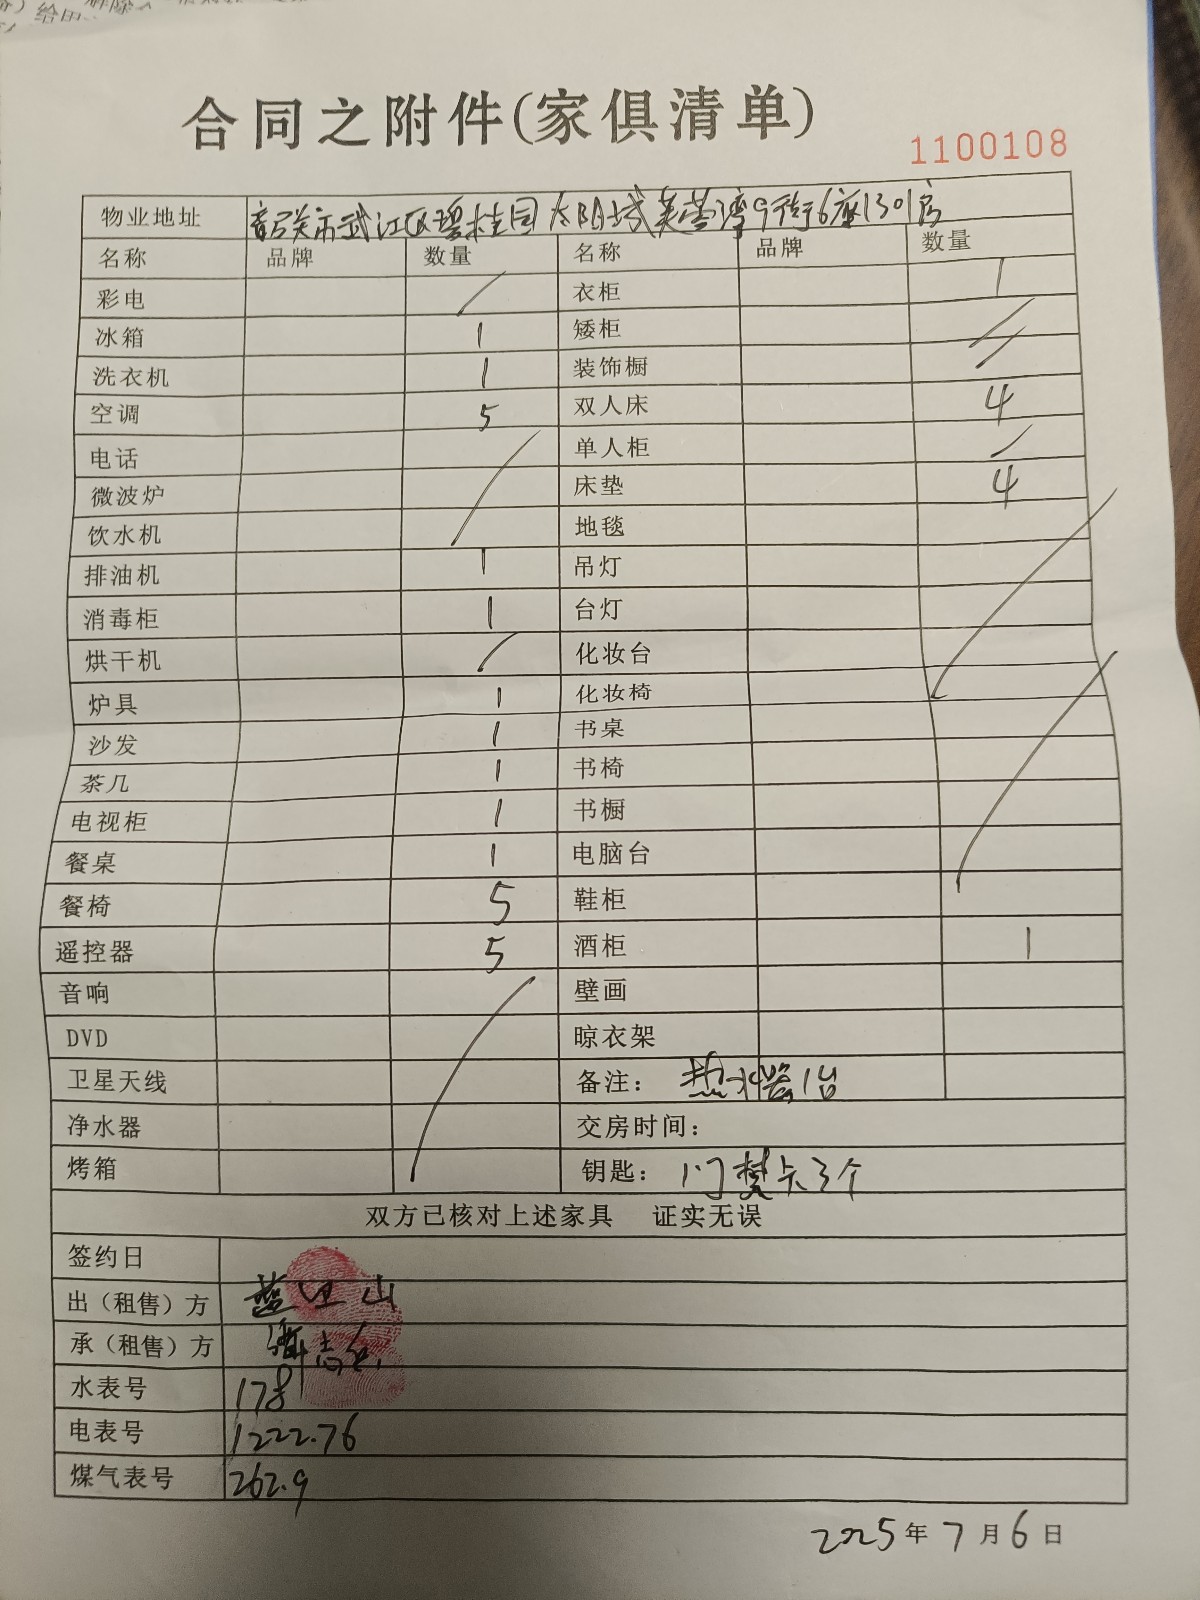 合同之附件(家俱清单)
1100108
物业地址 韶关市武江区碧桂园太阳城芙蓉湾9街6座1301房
名称 品牌 数量 名称 品牌 数量
彩电 衣柜 1
冰箱 1 矮柜
洗衣机 1 装饰橱
空调 5 双人床 4
电话 单人柜
微波炉 床垫 4
饮水机 地毯
排油机 1 吊灯
消毒柜 1 台灯
烘干机 化妆台
炉具 1 化妆椅
沙发 1 书桌
茶几 1 书椅
电视柜 1 书橱
餐桌 1 电脑台
餐椅 5 鞋柜
遥控器 5 酒柜 1
音响 壁画
DVD 晾衣架
卫星天线 备注: 热水器1台
净水器 交房时间:
烤箱 钥匙: 门禁卡3个
双方已核对上述家具 证实无误
签约日
出（租售）方
承（租售）方
水表号 178
电表号 1222.76
煤气表号 262.9
2025年7月6日